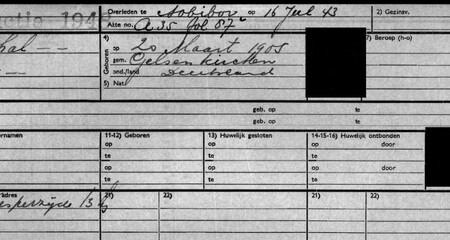 ctie 194
Overleden te Sobibor op 16 Jul 43
2) Gezinsv.
Akte no. A35 fol 87
4) Geboren
op 20 Maart 1905
7) Beroep (h-o)
gem. Gelsenkirchen
ind./land Duitsland
5) Nat.
geb. op te
geb. op te
ernamen 11-12) Geboren 13) Huwelijk gesloten 14-15-16) Huwelijk ontbonden
op op op door
te te te
op op op door
te te te
adres 21) 22) 21) 22)